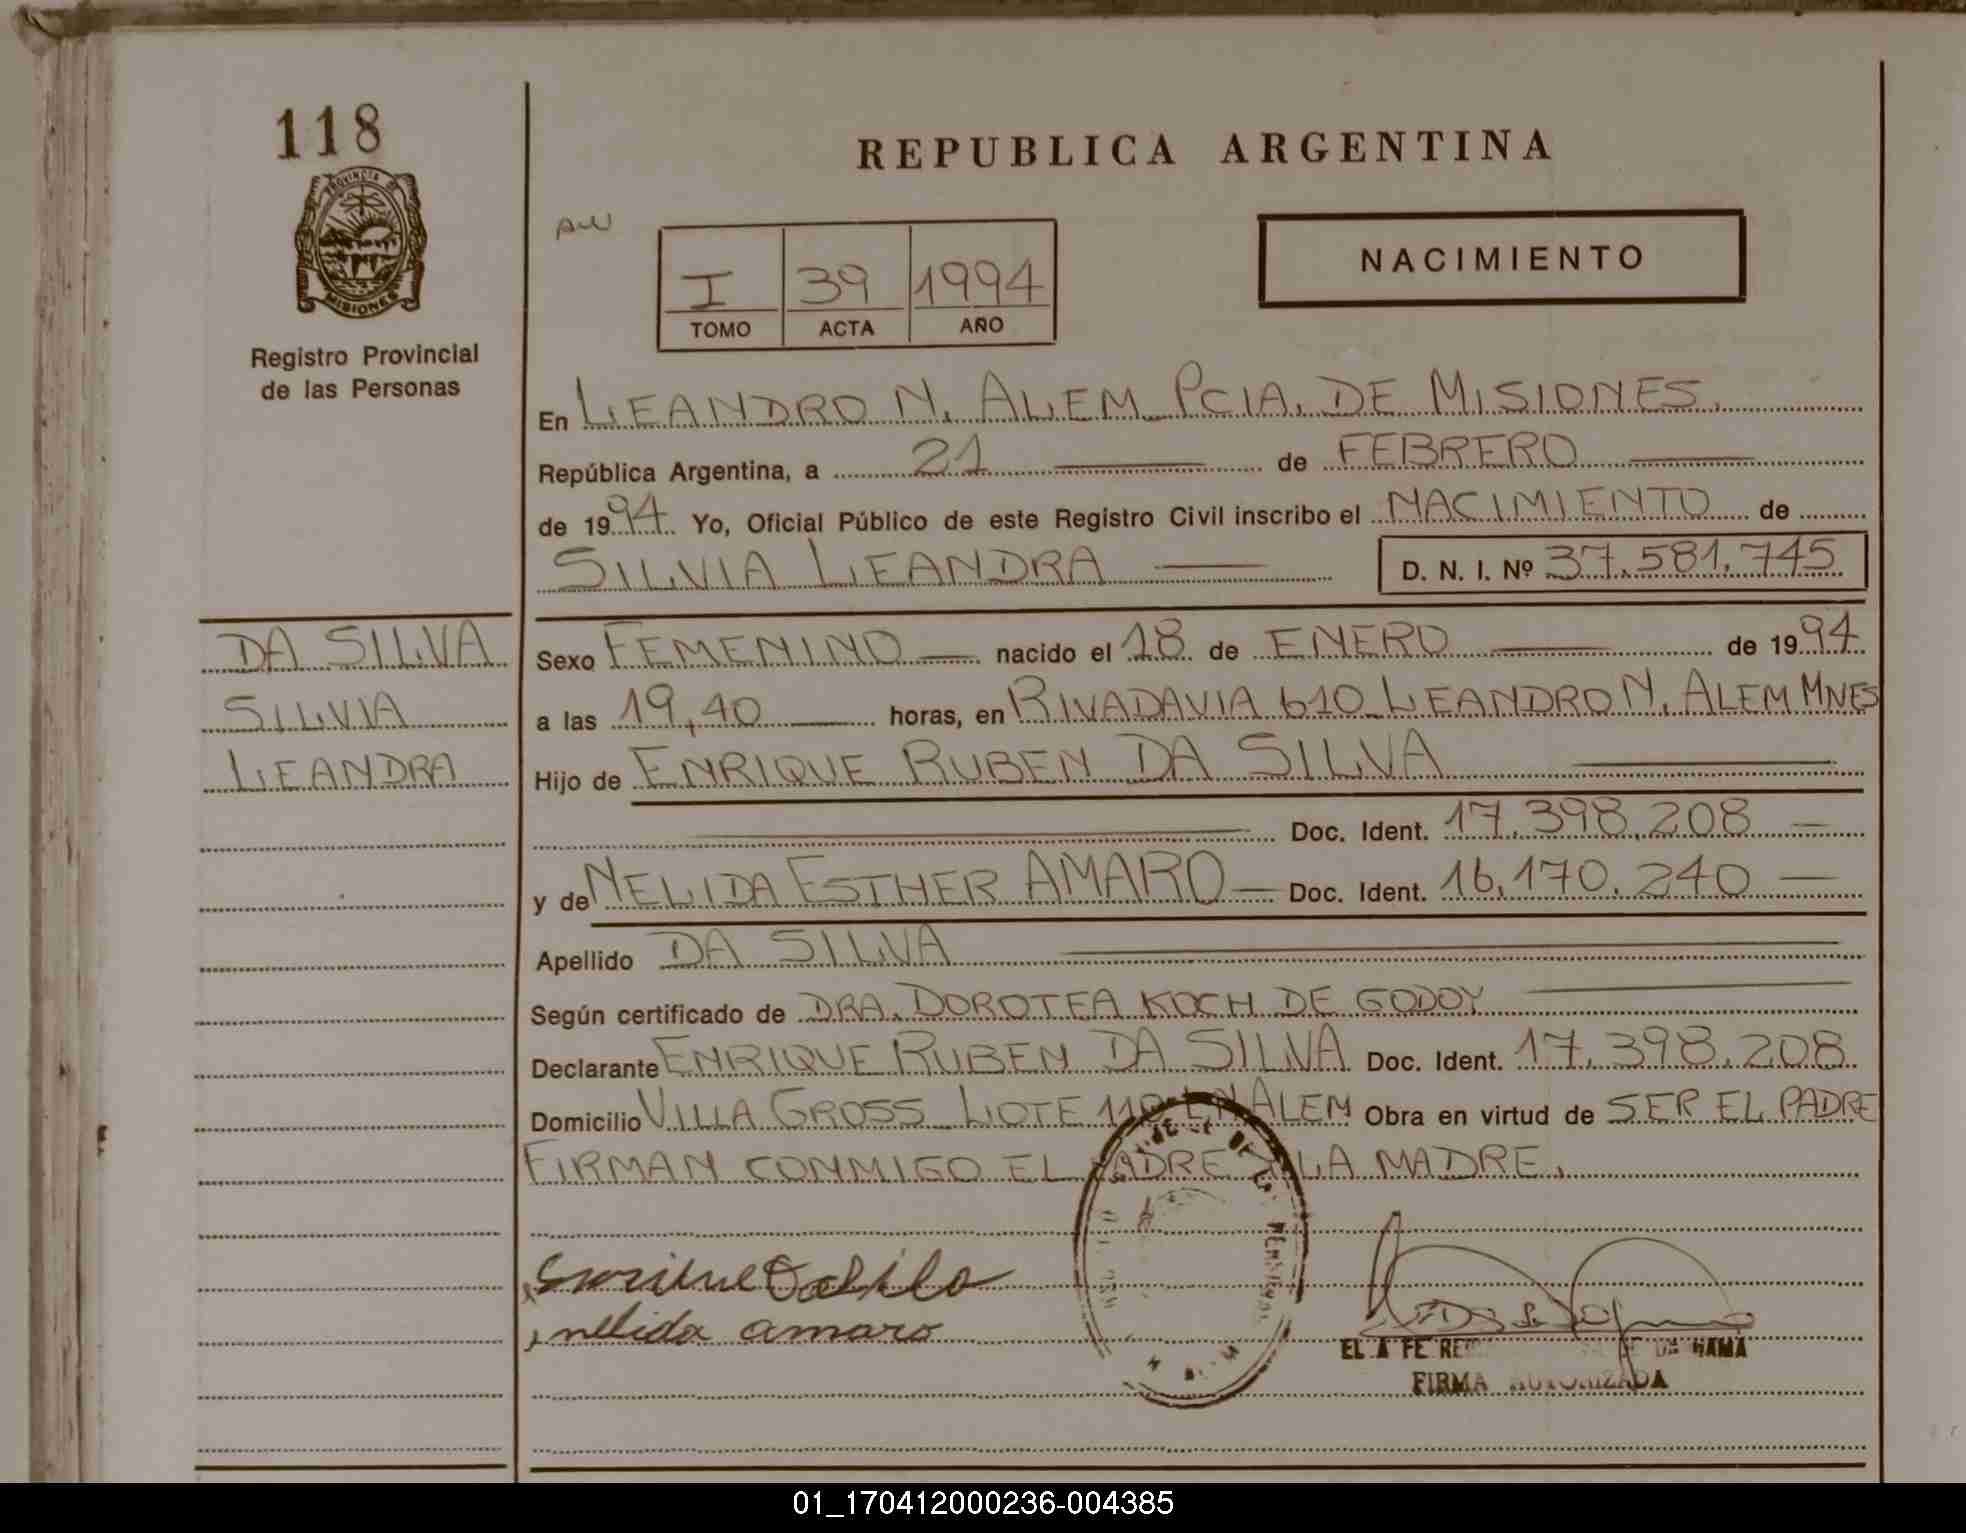 118
PROVINCIA DE
MISIONES
Registro Provincial
de las Personas
DA SILVA
SILVIA
LEANDRA
REPUBLICA ARGENTINA
I 39 1994
TOMO ACTA AÑO
NACIMIENTO
En LEANDRO N. ALEM PCIA. DE MISIONES.
República Argentina, a 21 de FEBRERO
de 1994 Yo, Oficial Público de este Registro Civil inscribo el NACIMIENTO de
SILVIA LEANDRA D. N. I. Nº 37.581.745
Sexo FEMENINO nacido el 18 de ENERO de 1994
a las 19,40 horas, en RIVADAVIA 610_LEANDRO N. ALEM MNES
Hijo de ENRIQUE RUBEN DA SILVA
Doc. Ident. 17.398.208
y de NELIDA ESTHER AMARO Doc. Ident. 16.170.240
Apellido DA SILVA
Según certificado de DRA. DOROTEA KOCH DE GODOY
Declarante ENRIQUE RUBEN DA SILVA Doc. Ident. 17.398.208
Domicilio VILLA GROSS_LOTE 110 LN ALEM Obra en virtud de SER EL PADRE
FIRMAN CONMIGO EL PADRE LA MADRE.
nelida amaro
FIRMA AUTORIZADA
01_170412000236-004385